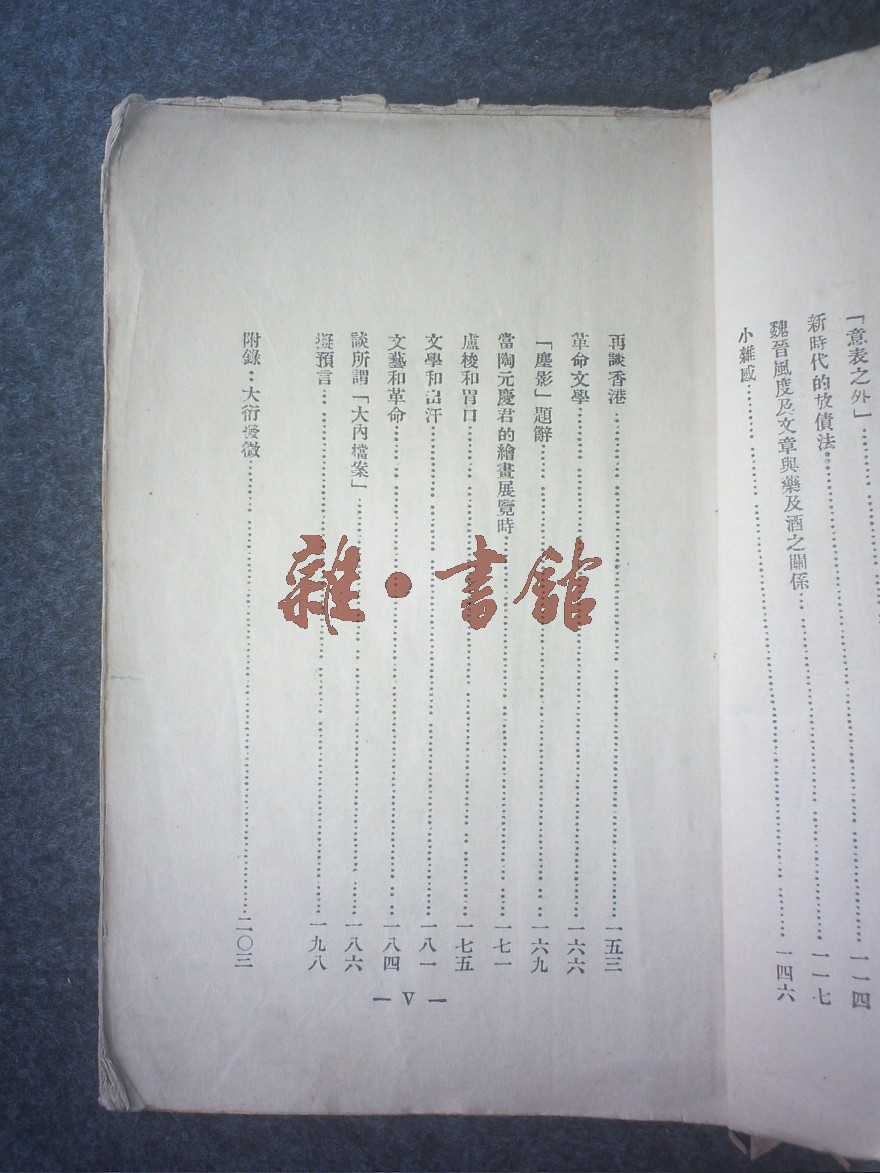 「意表之外」
新時代的放債法……一一四
魏晉風度及文章與藥及酒之關係……一一七
小雜感……一四六
再談香港……一五三
革命文學……一六六
「塵影」題辭……一六九
當陶元慶君的繪畫展覽時……一七一
盧梭和胃口……一七五
文學和出汗……一八一
文藝和革命……一八四
談所謂「大內檔案」……一八六
擬預言……一九八
附錄：大衍發微……二〇三
— V —
雜·書館